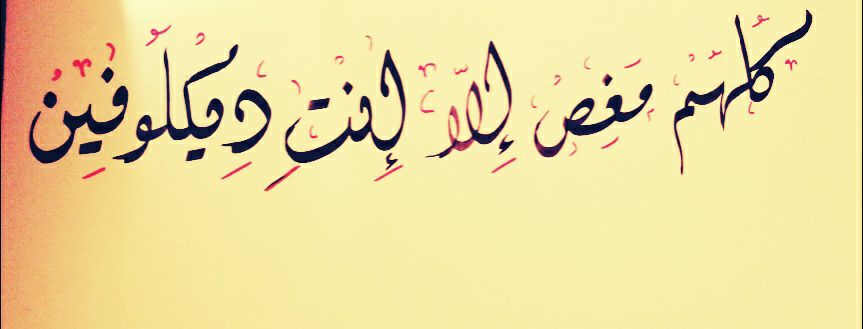 كلهم مغص إلا إنت ديكلوفين